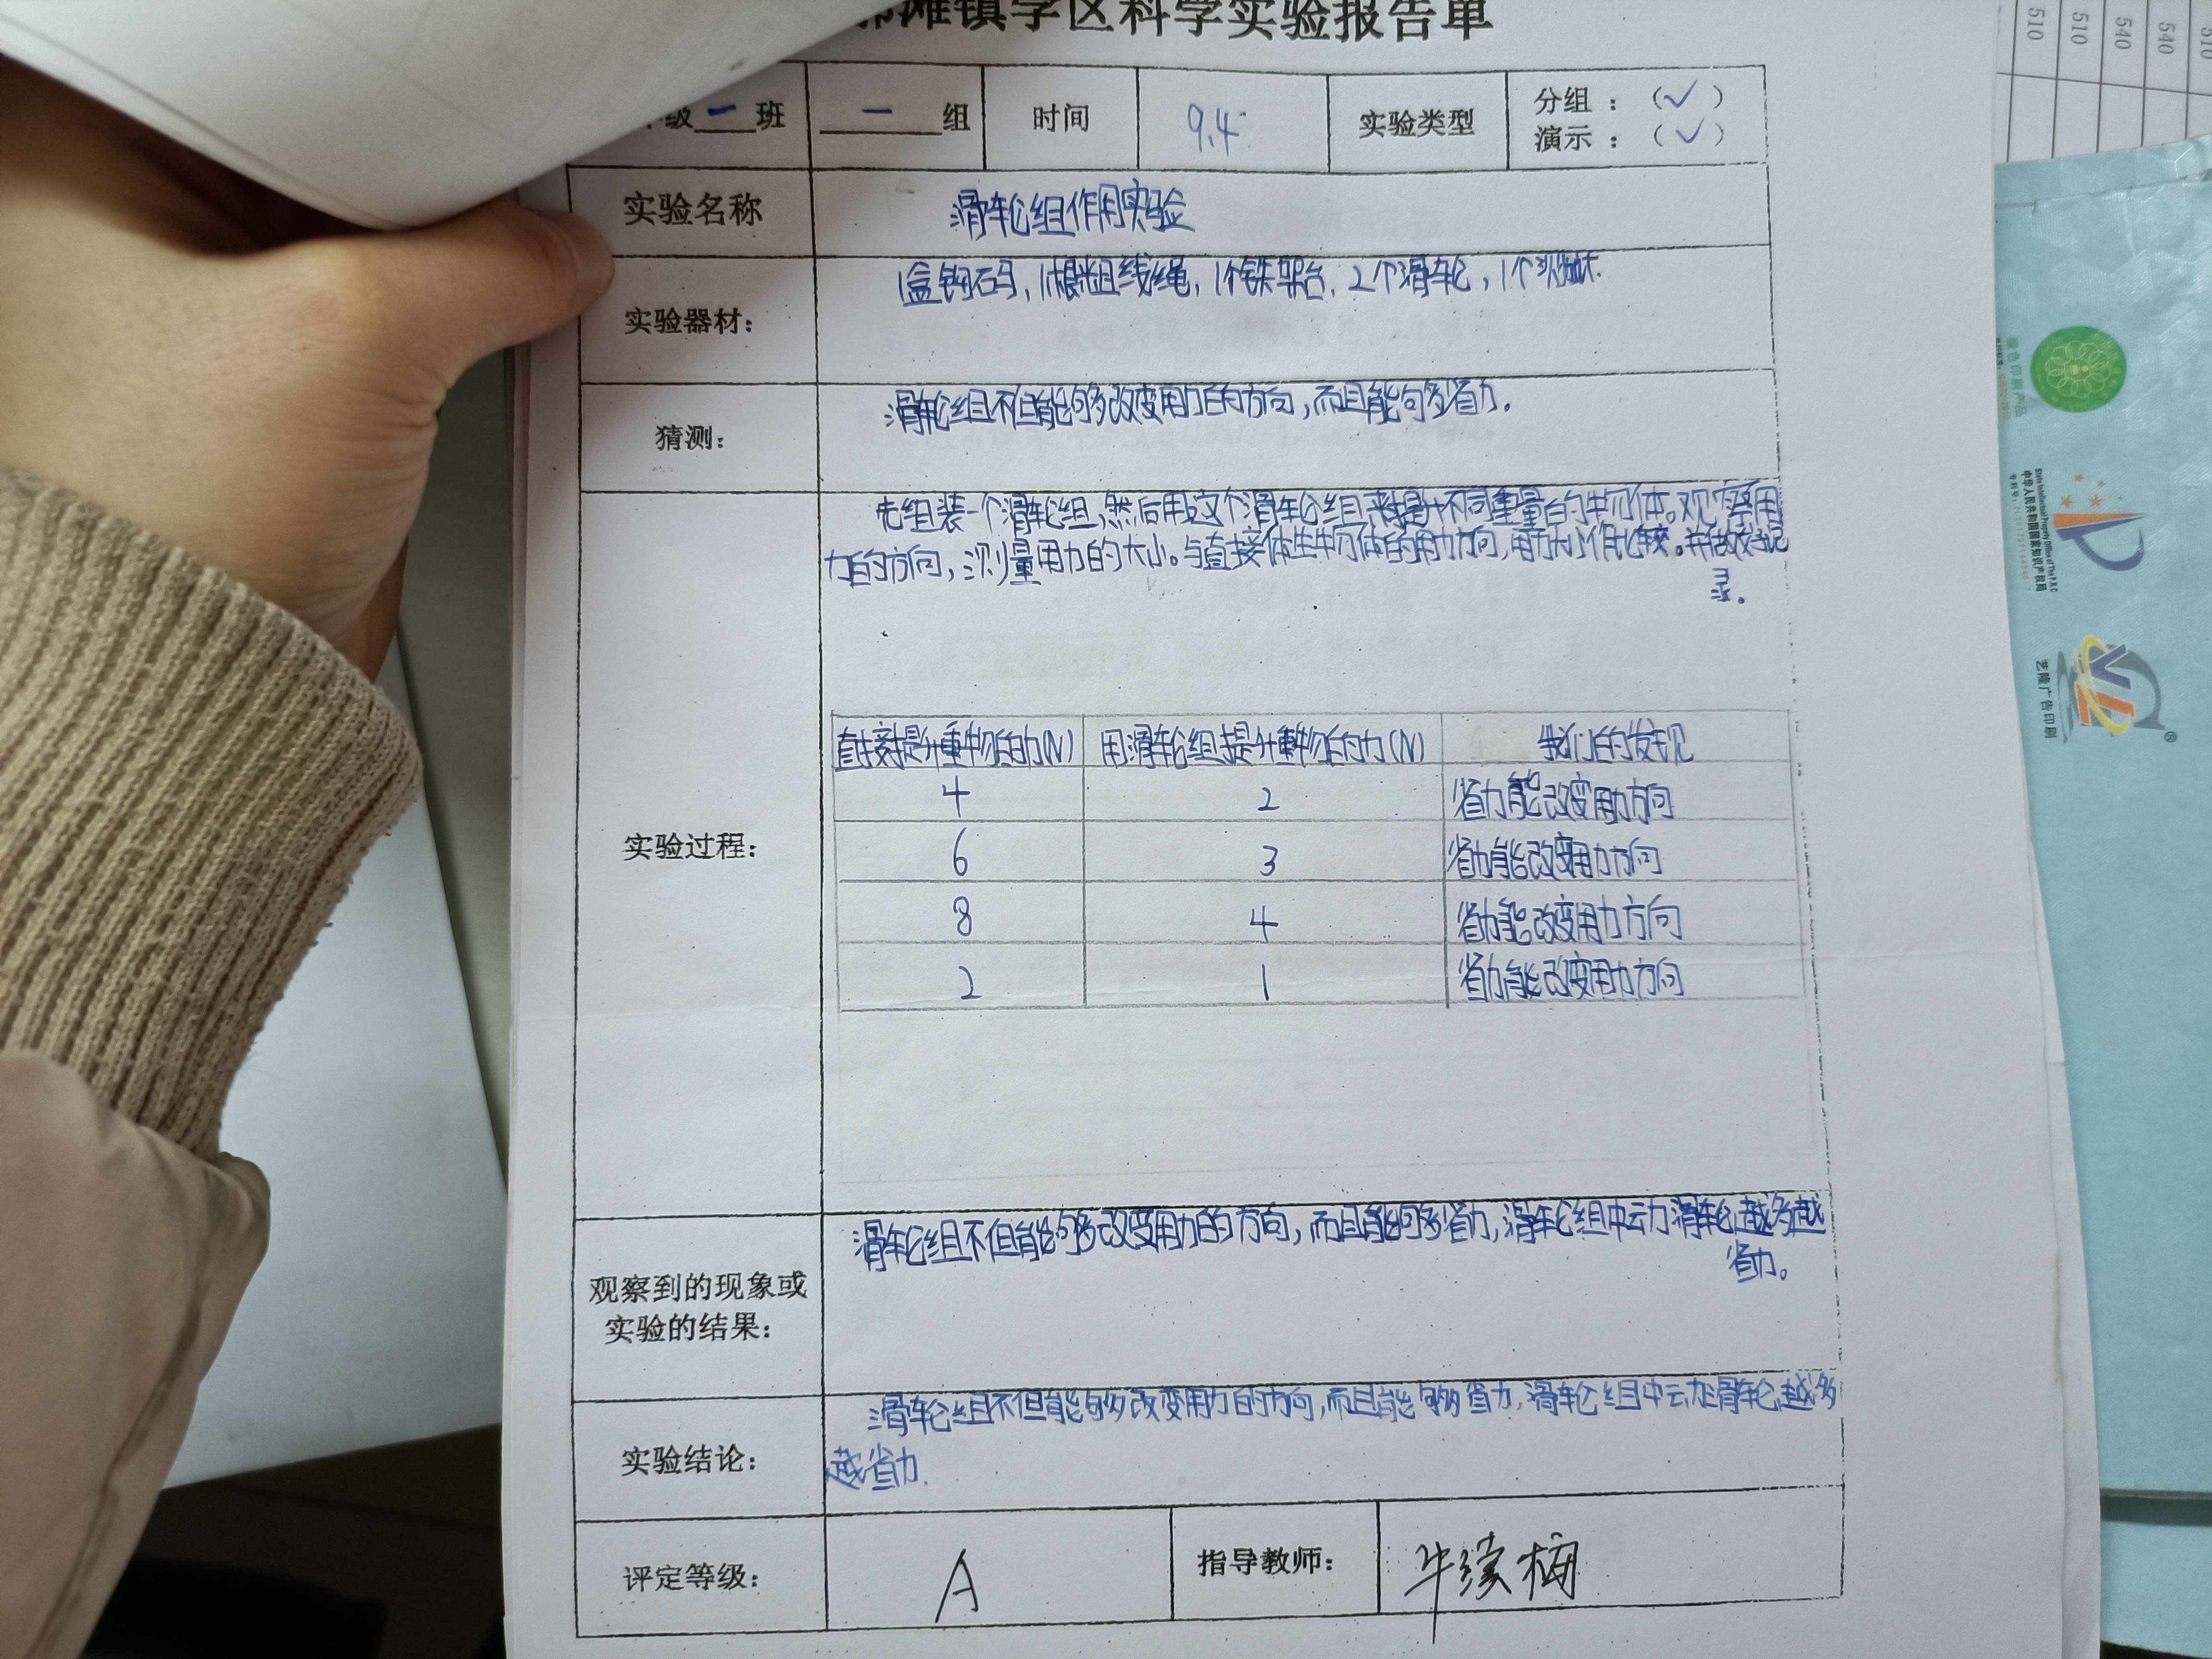 滩镇学区科学实验报告单
级一班 一组 时间 9.4 实验类型 分组：（✓）
演示：（✓）
实验名称 滑轮组作用实验
实验器材： 1盒钩码，1根粗线绳，1个铁架台，2个滑轮，1个测力计.
猜测： 滑轮组不但能够改变用力的方向，而且能够省力。
先组装一个滑轮组，然后用这个滑轮组来提升不同重量的物体。观察用
力的方向，测量用力的大小。与直接体生物体的用力方向，用力大小作比较。并做好记
录。
实验过程：
直接提升重物的力(N) 用滑轮组提升重物的力(N) 我们的发现
4 2 省力能改变用力方向
6 3 省力能改变用力方向
8 4 省力能改变用力方向
2 1 省力能改变用力方向
观察到的现象或
实验的结果：
滑轮组不但能够改变用力的方向，而且能够省力，滑轮组中动滑轮越多越
省力。
实验结论： 滑轮组不但能够改变用力的方向，而且能够省力，滑轮组中动滑轮越多
越省力.
评定等级： A 指导教师： 牛续梅
510
510
540
540
510
绿色印刷产品
State Intellectual Property Office of The P.R.C
中华人民共和国国家知识产权局
艺隆广告印刷
®